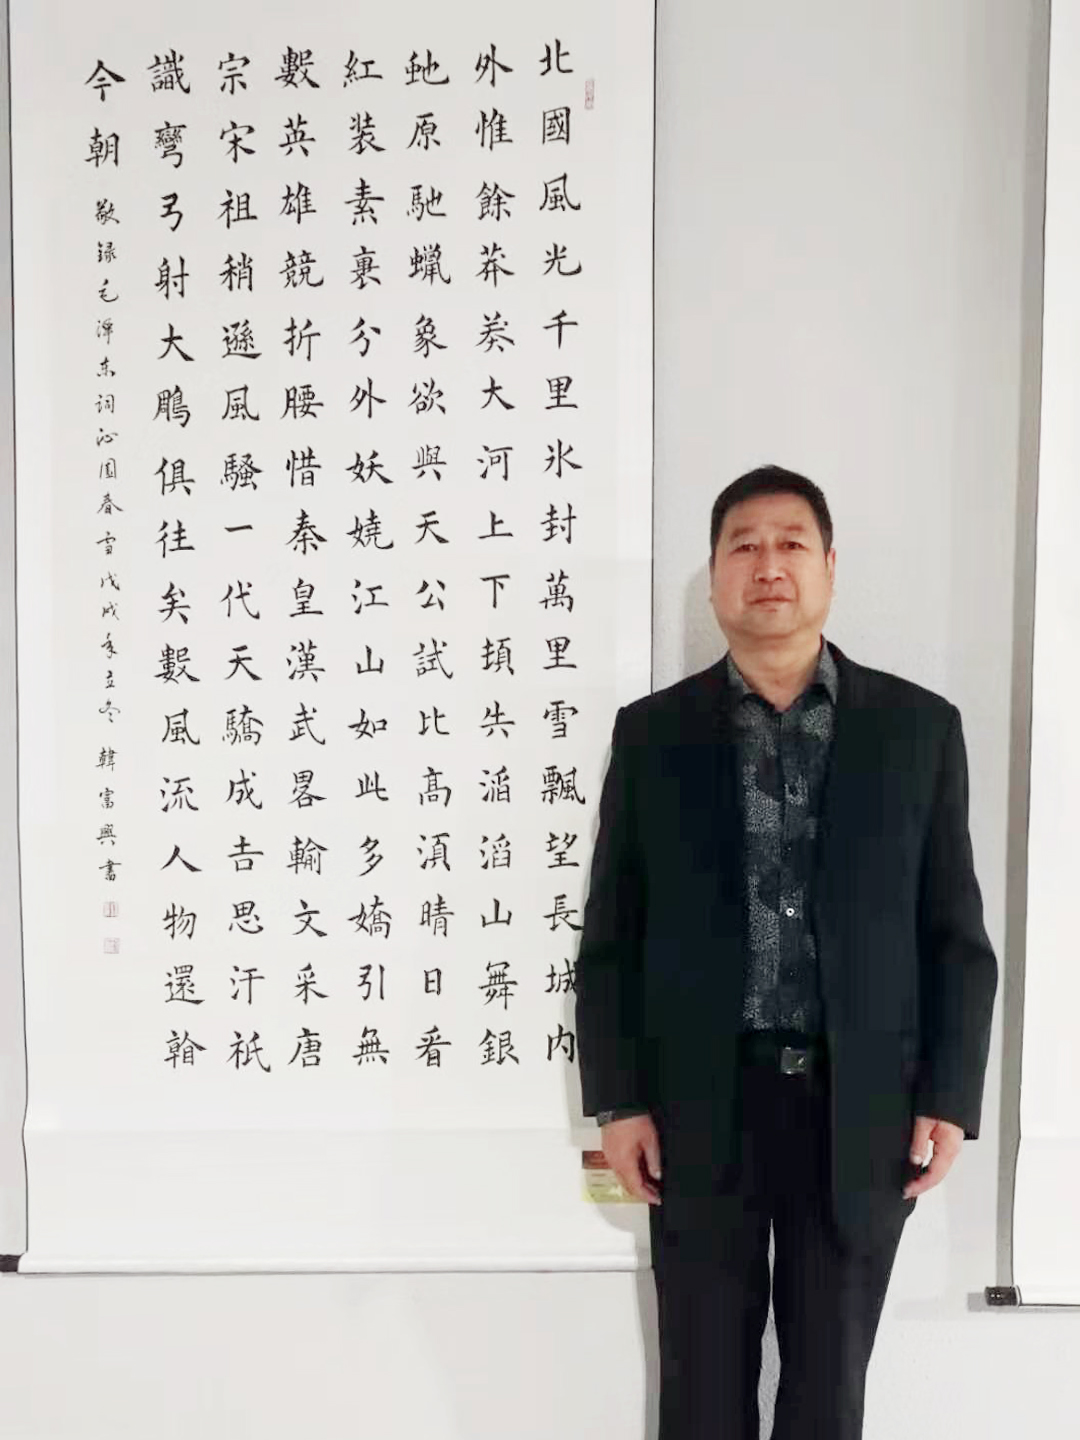 北國風光千里氷封萬里雪飄望長城内
外惟餘莽莽大河上下頓失滔滔山舞銀
虵原馳蠟象欲與天公試比高湏晴日看
紅装素裹分外妖嬈江山如此多嬌引無
數英雄競折腰惜秦皇漢武畧輸文采唐
宗宋祖稍遜風騷一代天驕成吉思汗祇
識彎弓射大鵰俱往矣數風流人物還看
今朝 敬録毛澤东詞沁園春雪戊戌年立冬 韓富興書